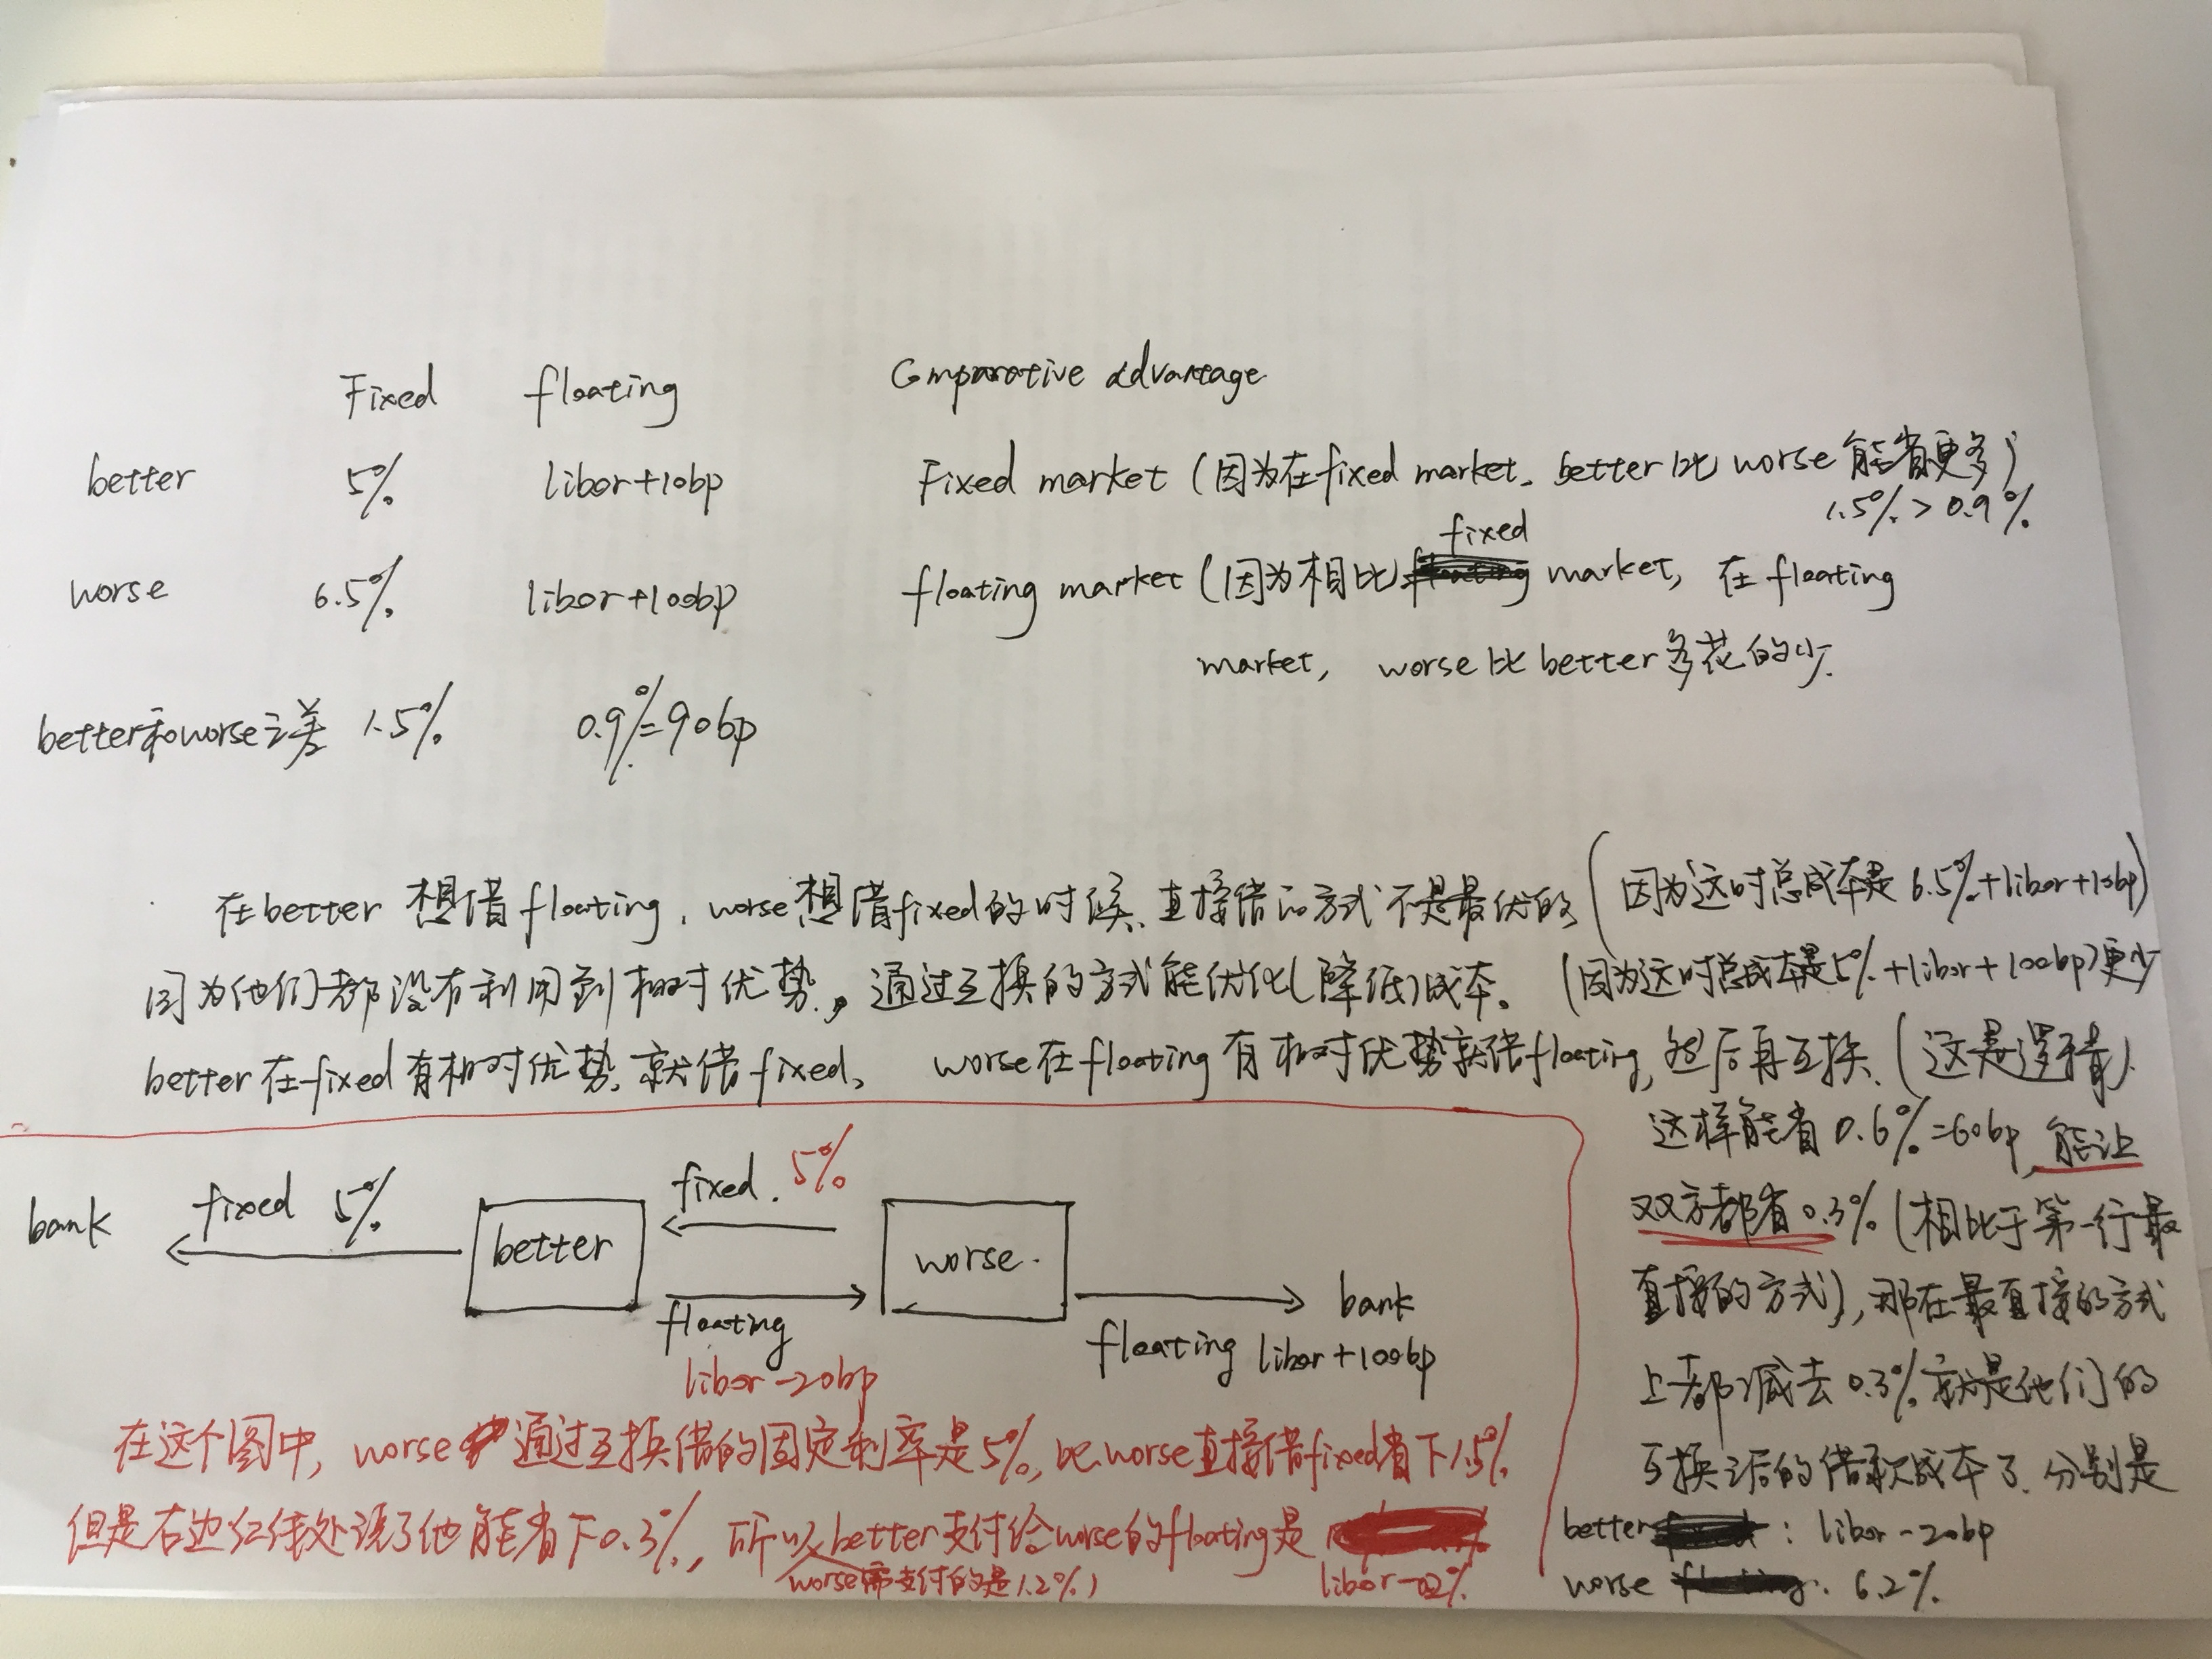 Fixed floating Comparative advantage
better 5% libor+10bp Fixed market (因为在fixed market. better比 worse 能省更多)
1.5% > 0.9%
fixed
worse 6.5% libor+100bp floating market (因为相比 market, 在 floating
market, worse 比 better 多花的少.
better和worse之差 1.5% 0.9%=90bp
在better 想借 floating, worse想借fixed的时候、直接借的方式不是最优的 (因为这时总成本是 6.5%+libor+10bp)
因为他们都没有利用到相对优势, 通过互换的方式能优化(降低)成本。 (因为这时总成本是5%+libor+100bp)更少
better 在fixed有相对优势, 就借 fixed、 worse 在floating 有相对优势就借floating, 然后再互换、(这是逻辑)
这样能省 0.6%=60bp, 能让
双方都省 0.3% (相比于第一行最
直接的方式), 那在最直接的方式
上都减去 0.3% 就是他们的
互换之后的借款成本了. 分别是
better : libor-20bp
worse : 6.2%
bank fixed 5% better fixed. 5% worse.
floating bank
libor-20bp floating libor+100bp
在这个图中, worse 通过互换借的固定利率是5%, 比worse直接借fixed省下1.5%
但是右边红线处说了他能省下0.3%, 所以better支付给worse的floating是
worse需支付的是1.2%) libor-0.2%